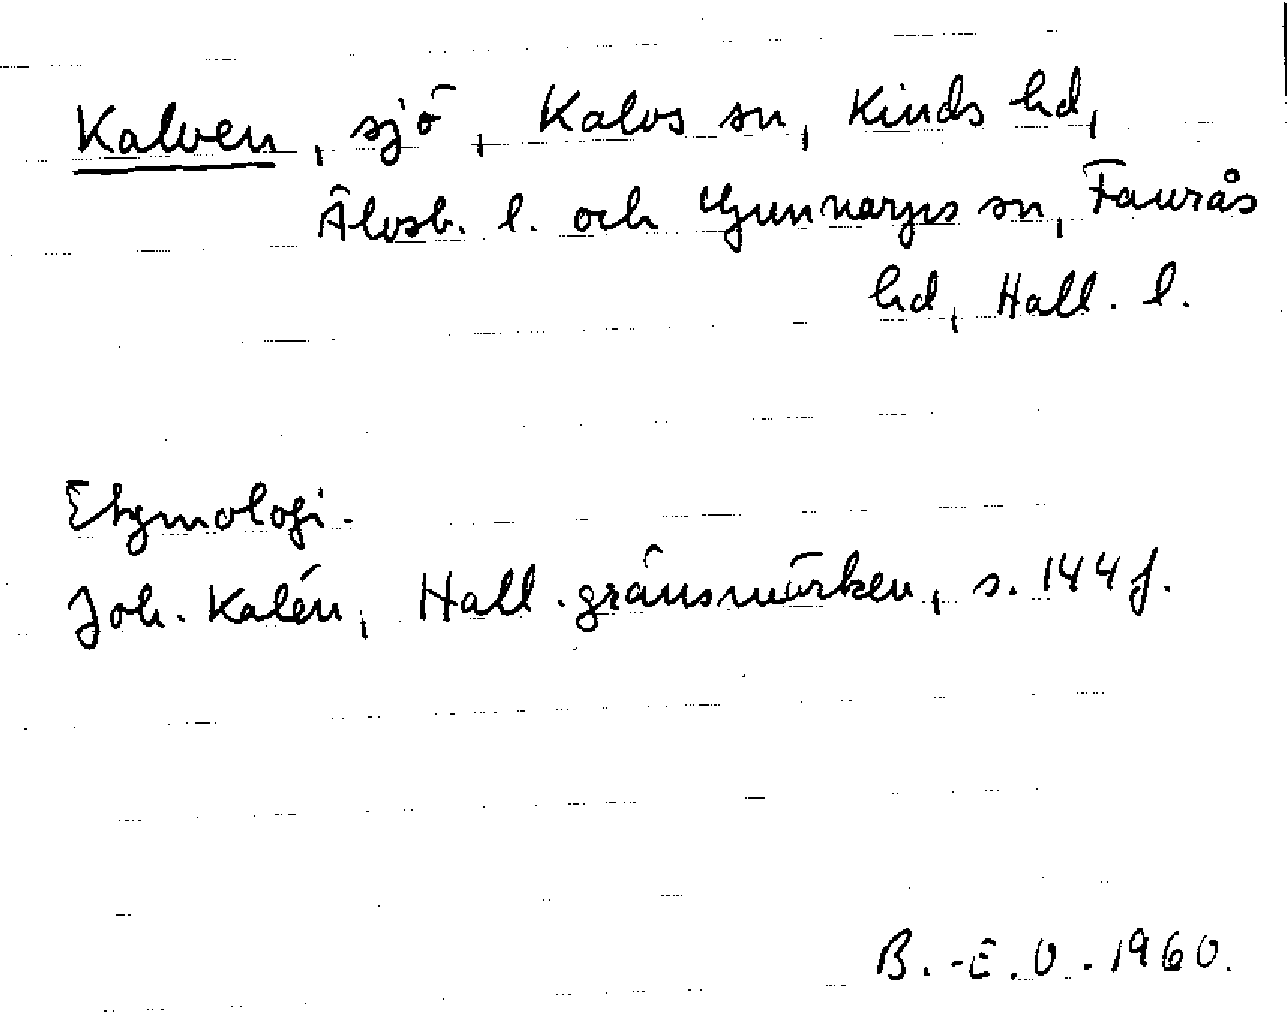 Kalven, sjö, Kalvs sn, Kinds hd,
Älvsb. l. och Gunnarps sn, Faurås
hd, Hall. l.
Etymologi.
Joh. Kalén, Hall. gränsmärken, s. 144 f.
B.-E. O. 1960.